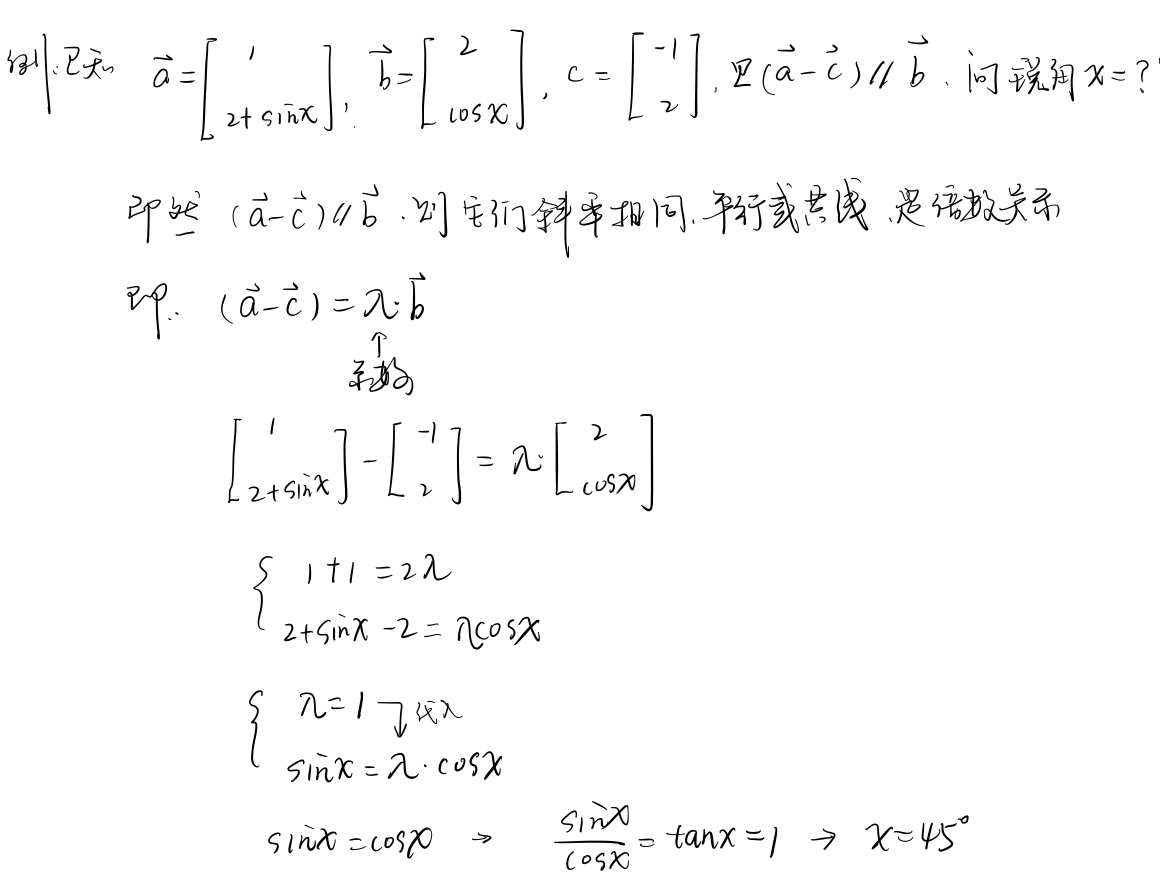 例:已知 \vec{a}=\begin{bmatrix} 1 \\ 2+sinx \end{bmatrix}, \vec{b}=\begin{bmatrix} 2 \\ cosx \end{bmatrix}, c=\begin{bmatrix} -1 \\ 2 \end{bmatrix}, 且(\vec{a}-\vec{c})//\vec{b}. 问锐角x=?
即然 (\vec{a}-\vec{c})//\vec{b}. 则它们斜率相同.平行或共线.是倍数关系
即: (\vec{a}-\vec{c})=λ·\vec{b}
↑
系数
\begin{bmatrix} 1 \\ 2+sinx \end{bmatrix}-\begin{bmatrix} -1 \\ 2 \end{bmatrix}=λ·\begin{bmatrix} 2 \\ cosx \end{bmatrix}
{ 1+1=2λ
2+sinx-2=λcosx
{ λ=1 代入
sinx=λ·cosx
sinx=cosx → \frac{sinx}{cosx}=tanx=1 → x=45°